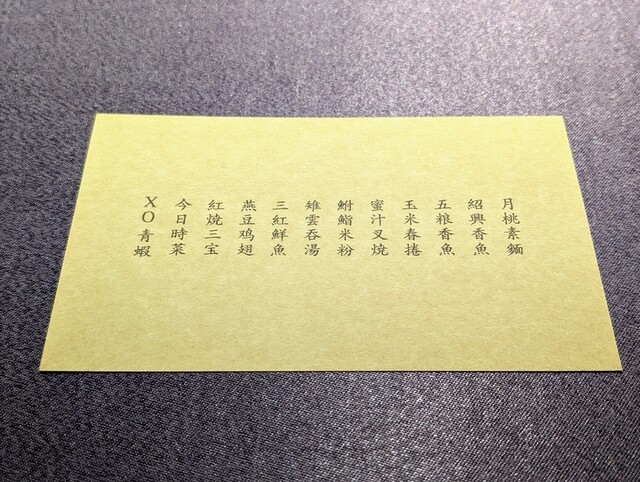 月桃素麺
紹興香魚
五粮香魚
玉米春捲
蜜汁叉焼
鮒鮨米粉
雉雲呑湯
三紅鮮魚
燕豆鸡翅
紅焼三宝
今日時菜
XO青蝦